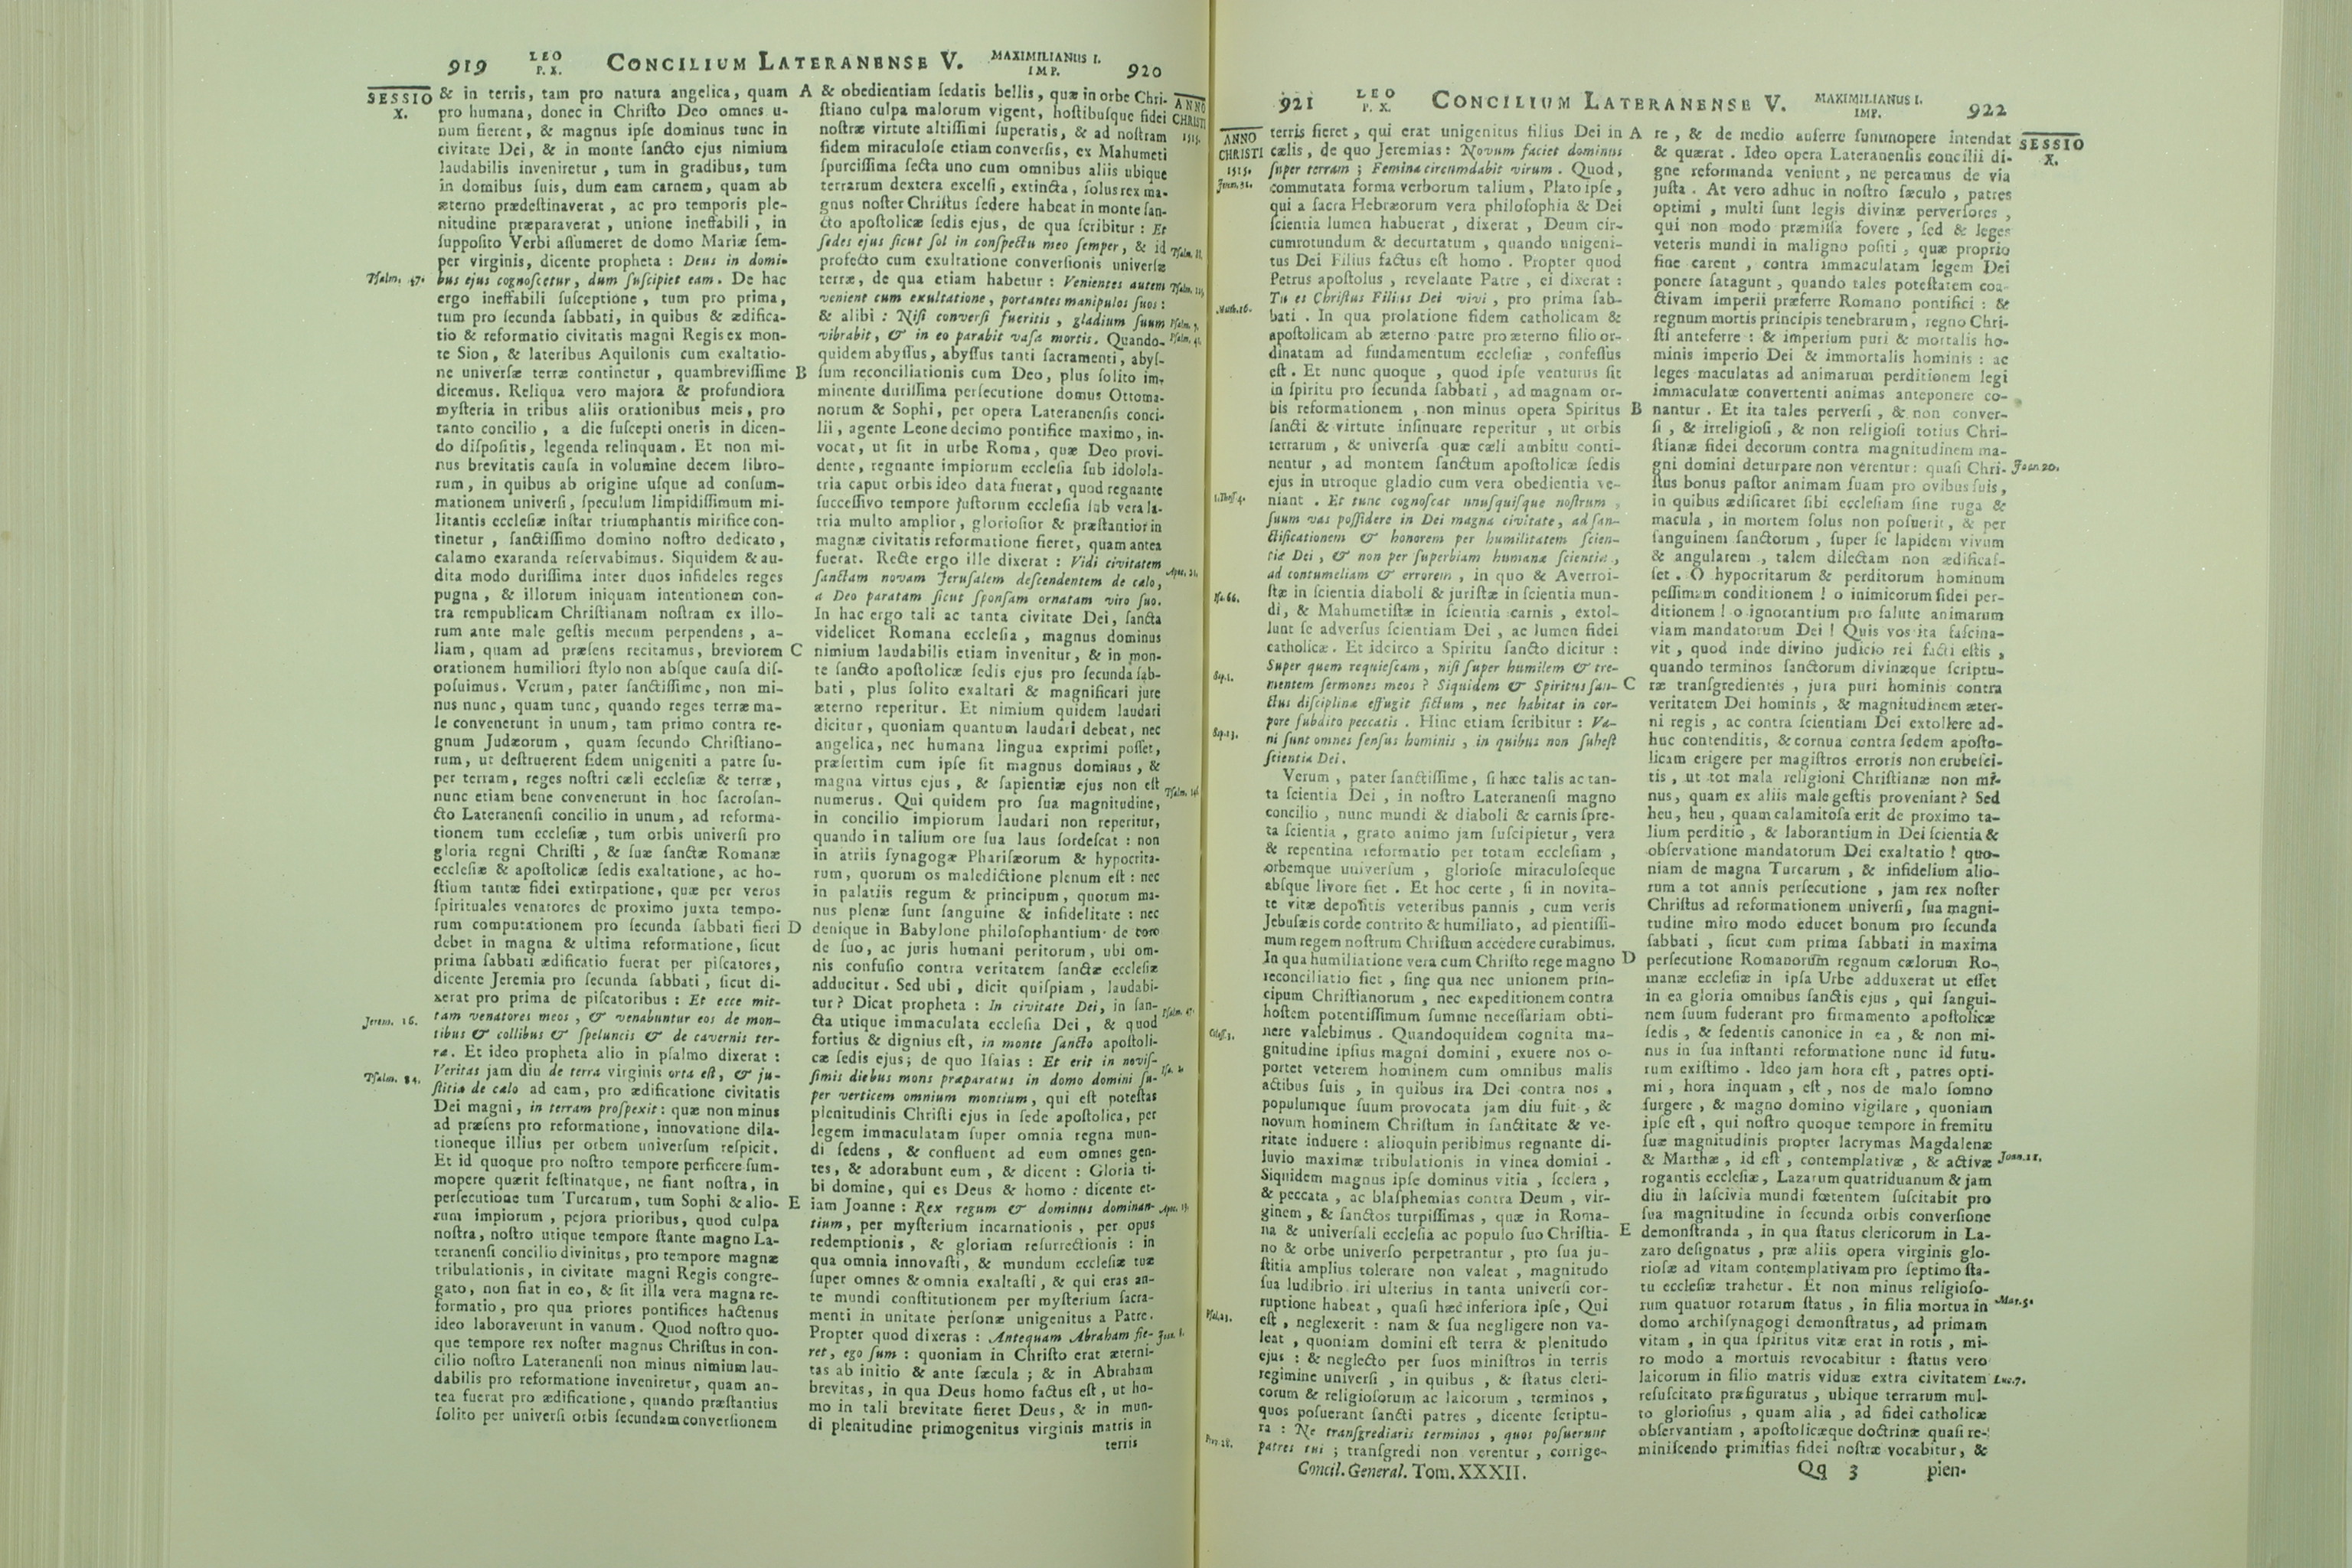 919 LEO P. X. CONCILIUM LATERANENSE V. MAXIMILIANUS I. IMP. 920
SESSIO X.
& in terris, tam pro natura angelica, quam
pro humana, donec in Chriſto Deo omnes u-
num fierent, & magnus ipſe dominus tunc in
civitate Dei, & in monte ſancto ejus nimium
laudabilis inveniretur, tum in gradibus, tum
in domibus ſuis, dum eam carnem, quam ab
æterno prædeſtinaverat, ac pro temporis ple-
nitudine præparaverat, unione ineffabili, in
ſuppoſito Verbi aſſumeret de domo Mariæ ſem-
per virginis, dicente propheta: Deus in domi-
Pſalm. 47.
bus ejus cognoſcetur, dum ſuſcipiet eam. De hac
ergo ineffabili ſuſceptione, tum pro prima,
tum pro ſecunda ſabbati, in quibus & ædifica-
tio & reformatio civitatis magni Regis ex mon-
te Sion, & lateribus Aquilonis cum exaltatio-
ne univerſæ terræ continetur, quambreviſſime
dicemus. Reliqua vero majora & profundiora
myſteria in tribus aliis orationibus meis, pro
tanto concilio, a die ſuſcepti oneris in dicen-
do diſpoſitis, legenda relinquam. Et non mi-
nus brevitatis cauſa in volumine decem libro-
rum, in quibus ab origine uſque ad conſum-
mationem univerſi, ſpeculum limpidiſſimum mi-
litantis eccleſiæ inſtar triumphantis mirifice con-
tinetur, ſanctiſſimo domino noſtro dedicato,
calamo exaranda reſervabimus. Siquidem & au-
dita modo duriſſima inter duos infideles reges
pugna, & illorum iniquam intentionem con-
tra rempublicam Chriſtianam noſtram ex illo-
rum ante male geſtis mecum perpendens, a-
liam, quam ad præſens recitamus, breviorem
orationem humiliori ſtylo non abſque cauſa diſ-
poſuimus. Verum, pater ſanctiſſime, non mi-
nus nunc, quam tunc, quando reges terræ ma-
le convenerunt in unum, tam primo contra re-
gnum Judæorum, quam ſecundo Chriſtiano-
rum, ut deſtruerent fidem unigeniti a patre ſu-
per terram, reges noſtri cæli eccleſiæ & terræ,
nunc etiam bene convenerunt in hoc ſacroſan-
cto Lateranenſi concilio in unum, ad reforma-
tionem tum eccleſiæ, tum orbis univerſi pro
gloria regni Chriſti, & ſuæ ſanctæ Romanæ
eccleſiæ & apoſtolicæ ſedis exaltatione, ac ho-
ſtium tantæ fidei extirpatione, quæ per veros
ſpirituales venatores de proximo juxta tempo-
rum computationem pro ſecunda ſabbati fieri
debet in magna & ultima reformatione, ſicut
prima ſabbati ædificatio fuerat per piſcatores,
dicente Jeremia pro ſecunda ſabbati, ſicut di-
xerat pro prima de piſcatoribus: Et ecce mit-
Jerem. 16.
tam venatores meos, & venabuntur eos de mon-
tibus & collibus & ſpeluncis & de cavernis ter-
ræ. Et ideo propheta alio in pſalmo dixerat:
Pſalm. 84.
Veritas jam diu de terra virginis orta eſt, & ju-
ſtitia de cælo ad eam, pro ædificatione civitatis
Dei magni, in terram proſpexit: quæ non minus
ad præſens pro reformatione, innovatione dila-
tioneque illius per orbem univerſum reſpicit.
Et id quoque pro noſtro tempore perficere ſum-
mopere quærit feſtinatque, ne fiant noſtra, in
perſecutione tum Turcarum, tum Sophi & alio-
rum impiorum, pejora prioribus, quod culpa
noſtra, noſtro utique tempore ſtante magno La-
teranenſi concilio divinitus, pro tempore magnæ
tribulationis, in civitate magni Regis congre-
gato, non fiat in eo, & ſit illa vera magna re-
formatio, pro qua priores pontifices hactenus
ideo laboraverunt in vanum. Quod noſtro quo-
que tempore rex noſter magnus Chriſtus in con-
cilio noſtro Lateranenſi non minus nimium lau-
dabilis pro reformatione inveniretur, quam an-
tea fuerat pro ædificatione, quando præſtantius
ſolito per univerſi orbis ſecundam converſionem
A
B
C
D
E
& obedientiam ſedatis bellis, quæ in orbe Chri-
ANNO CHRISTI 1515.
ſtiano culpa malorum vigent, hoſtibuſque fidei
noſtræ virtute altiſſimi ſuperatis, & ad noſtram
fidem miraculoſe etiam converſis, ex Mahumeti
ſpurciſſima ſecta uno cum omnibus aliis ubique
terrarum dextera excelſi, extincta, ſolus rex ma-
gnus noſter Chriſtus ſedere habeat in monte ſan-
cto apoſtolicæ ſedis ejus, de qua ſcribitur: Et
ſedes ejus ſicut ſol in conſpectu meo ſemper, & id
profecto cum exultatione converſionis univerſæ
terræ, de qua etiam habetur: Venientes autem
venient cum exultatione, portantes manipulos ſuos:
& alibi: Niſi converſi fueritis, gladium ſuum
vibrabit, & in eo parabit vaſa mortis. Quando-
quidem abyſſus, abyſſus tanti ſacramenti, abyſ-
ſum reconciliationis cum Deo, plus ſolito im-
minente duriſſima perſecutione domus Ottoma-
norum & Sophi, per opera Lateranenſis conci-
lii, agente Leone decimo pontifice maximo, in-
vocat, ut ſit in urbe Roma, quæ Deo provi-
dente, regnante impiorum eccleſia ſub idolola-
tria caput orbis ideo data fuerat, quod regnante
ſucceſſivo tempore juſtorum eccleſia ſub vera la-
tria multo amplior, glorioſior & præſtantior in
magnæ civitatis reformatione fieret, quam antea
fuerat. Recte ergo ille dixerat: Vidi civitatem
Apoc. 21.
ſanctam novam Jeruſalem deſcendentem de cælo,
a Deo paratam ſicut ſponſam ornatam viro ſuo.
In hac ergo tali ac tanta civitate Dei, ſancta
videlicet Romana eccleſia, magnus dominus
nimium laudabilis etiam invenitur, & in mon-
te ſancto apoſtolicæ ſedis ejus pro ſecunda ſab-
bati, plus ſolito exaltari & magnificari jure
æterno reperitur. Et nimium quidem laudari
dicitur, quoniam quantum laudari debeat, nec
angelica, nec humana lingua exprimi poſſet,
præſertim cum ipſe ſit magnus dominus, &
magna virtus ejus, & ſapientiæ ejus non eſt
numerus. Qui quidem pro ſua magnitudine,
in concilio impiorum laudari non reperitur,
quando in talium ore ſua laus ſordeſcat: non
in atriis ſynagogæ Phariſæorum & hypocrita-
rum, quorum os maledictione plenum eſt: nec
in palatiis regum & principum, quorum ma-
nus plenæ ſunt ſanguine & infidelitate: nec
denique in Babylone philoſophantium de toto
de ſuo, ac juris humani peritorum, ubi om-
nis confuſio contra veritatem ſanctæ eccleſiæ
adducitur. Sed ubi, dicit quiſpiam, laudabi-
tur? Dicat propheta: In civitate Dei, in ſan-
Pſalm. 47.
cta utique immaculata eccleſia Dei, & quod
fortius & dignius eſt, in monte ſancto apoſtoli-
cæ ſedis ejus; de quo Iſaias: Et erit in noviſ-
ſimis diebus mons præparatus in domo domini ſu-
per verticem omnium montium, qui eſt poteſtas
plenitudinis Chriſti ejus in ſede apoſtolica, per
legem immaculatam ſuper omnia regna mun-
di ſedens, & confluent ad eum omnes gen-
tes, & adorabunt eum, & dicent: Gloria ti-
bi domine, qui es Deus & homo: dicente et-
iam Joanne: Rex regum & dominus dominan-
Apoc. 19.
tium, per myſterium incarnationis, per opus
redemptionis, & gloriam reſurrectionis: in
qua omnia innovaſti, & mundum eccleſiæ tuæ
ſuper omnes & omnia exaltaſti, & qui eras an-
te mundi conſtitutionem per myſterium ſacra-
menti in unitate perſonæ unigenitus a Patre.
Propter quod dixeras: Antequam Abraham fie-
ret, ego ſum: quoniam in Chriſto erat æterni-
tas ab initio & ante ſæcula; & in Abraham
brevitas, in qua Deus homo factus eſt, ut ho-
mo in tali brevitate fieret Deus, & in mun-
di plenitudine primogenitus virginis matris in
terris
921 LEO P. X. CONCILIUM LATERANENSE V. MAXIMILIANUS I. IMP. 922
ANNO CHRISTI 1515.
terris fieret, qui erat unigenitus filius Dei in
cælis, de quo Jeremias: Novum faciet dominus
Jerem. 31.
ſuper terram; Femina circumdabit virum. Quod,
commutata forma verborum talium, Plato ipſe,
qui a ſacra Hebræorum vera philoſophia & Dei
ſcientia lumen habuerat, dixerat, Deum cir-
cumrotundum & decurtatum, quando unigeni-
tus Dei Filius factus eſt homo. Propter quod
Petrus apoſtolus, revelante Patre, ei dixerat:
Matth. 16.
Tu es Chriſtus Filius Dei vivi, pro prima ſab-
bati. In qua prolatione fidem catholicam &
apoſtolicam ab æterno patre pro æterno filio or-
dinatam ad fundamentum eccleſiæ, confeſſus
eſt. Et nunc quoque, quod ipſe venturus ſit
in ſpiritu pro ſecunda ſabbati, ad magnam or-
bis reformationem, non minus opera Spiritus
ſancti & virtute inſinuare reperitur, ut orbis
terrarum, & univerſa quæ cæli ambitu conti-
nentur, ad montem ſanctum apoſtolicæ ſedis
ejus in utroque gladio cum vera obedientia ve-
1. Theſſ. 4.
niant. Et tunc cognoſcat unuſquiſque noſtrum,
ſuum vas poſſidere in Dei magna civitate, ad ſan-
ctificationem & honorem per humilitatem ſcien-
tiæ Dei, & non per ſuperbiam humanæ ſcientiæ,
ad contumeliam & errorem, in quo & Averroi-
Iſa. 66.
ſtæ in ſcientia diaboli & juriſtæ in ſcientia mun-
di, & Mahumetiſtæ in ſcientia carnis, extol-
lunt ſe adverſus ſcientiam Dei, ac lumen fidei
catholicæ. Et idcirco a Spiritu ſancto dicitur:
Super quem requieſcam, niſi ſuper humilem & tre-
Sap. 1.
mentem ſermones meos? Siquidem & Spiritus ſan-
ctus diſciplinæ effugit fictum, nec habitat in cor-
pore ſubdito peccatis. Hinc etiam ſcribitur: Va-
Sap. 13.
ni ſunt omnes ſenſus hominis, in quibus non ſubeſt
ſcientia Dei.
Verum, pater ſanctiſſime, ſi hæc talis ac tan-
ta ſcientia Dei, in noſtro Lateranenſi magno
concilio, nunc mundi & diaboli & carnis ſpre-
ta ſcientia, grato animo jam ſuſcipietur, vera
& repentina reformatio per totam eccleſiam,
orbemque univerſum, glorioſe miraculoſeque
abſque livore fiet. Et hoc certe, ſi in novita-
te vitæ depoſitis veteribus pannis, cum veris
Jebuſæis corde contrito & humiliato, ad pientiſſi-
mum regem noſtrum Chriſtum accedere curabimus.
In qua humiliatione vera cum Chriſto rege magno
reconciliatio fiet, ſine qua nec unionem prin-
cipum Chriſtianorum, nec expeditionem contra
hoſtem potentiſſimum ſumme neceſſariam obti-
Coloſſ. 3.
nere valebimus. Quandoquidem cognita ma-
gnitudine ipſius magni domini, exuere nos o-
portet veterem hominem cum omnibus malis
actibus ſuis, in quibus ira Dei contra nos,
populumque ſuum provocata jam diu fuit, &
novum hominem Chriſtum in ſanctitate & ve-
ritate induere: alioquin peribimus regnante di-
luvio maximæ tribulationis in vinea domini.
Siquidem magnus ipſe dominus vitia, ſcelera,
& peccata, ac blaſphemias contra Deum, vir-
ginem, & ſanctos turpiſſimas, quæ in Roma-
na & univerſali eccleſia ac populo ſuo Chriſtia-
no & orbe univerſo perpetrantur, pro ſua ju-
ſtitia amplius tolerare non valeat, magnitudo
ſua ludibrio iri ulterius in tanta univerſi cor-
ruptione habeat, quaſi hæc inferiora ipſe, Qui
Pſal. 23.
eſt, neglexerit: nam & ſua negligere non va-
leat, quoniam domini eſt terra & plenitudo
ejus: & neglecto per ſuos miniſtros in terris
regimine univerſi, in quibus, & ſtatus cleri-
corum & religioſorum ac laicorum, terminos,
quos poſuerant ſancti patres, dicente ſcriptu-
ra: Ne tranſgrediaris terminos, quos poſuerunt
patres tui; tranſgredi non verentur, corrige-
Concil. General. Tom. XXXII.
A
B
C
D
E
re, & de medio auferre ſummopere intendat
SESSIO X.
& quærat. Ideo opera Lateranenſis concilii di-
gne reformanda veniunt, ne pereamus de via
juſta. At vero adhuc in noſtro ſæculo, patres
optimi, multi ſunt legis divinæ perverſores,
qui non modo præmiſſa fovere, ſed & leges
veteris mundi in maligno poſiti, quæ proprio
fine carent, contra immaculatam legem Dei
ponere ſatagunt, quando tales poteſtatem coa-
ctivam imperii præferre Romano pontifici: &
regnum mortis principis tenebrarum, regno Chri-
ſti anteferre: & imperium puri & mortalis ho-
minis imperio Dei & immortalis hominis: ac
leges maculatas ad animarum perditionem legi
immaculatæ convertenti animas anteponere co-
nantur. Et ita tales perverſi, & non conver-
ſi, & irreligioſi, & non religioſi totius Chri-
ſtianæ fidei decorum contra magnitudinem ma-
gni domini deturpare non verentur: quaſi Chri-
Joan. 10.
ſtus bonus paſtor animam ſuam pro ovibus ſuis,
in quibus ædificaret ſibi eccleſiam ſine ruga &
macula, in mortem ſolus non poſuerit, & per
ſanguinem ſanctorum, ſuper ſe lapidem vivum
& angularem, talem dilectam non ædificaſ-
ſet. O hypocritarum & perditorum hominum
peſſimam conditionem! o inimicorum fidei per-
ditionem! o ignorantium pro ſalute animarum
viam mandatorum Dei! Quis vos ita faſcina-
vit, quod inde divino judicio rei facti eſtis,
quando terminos ſanctorum divinæque ſcriptu-
ræ tranſgredientes, jura puri hominis contra
veritatem Dei hominis, & magnitudinem æter-
ni regis, ac contra ſcientiam Dei extollere ad-
huc contenditis, & cornua contra ſedem apoſto-
licam erigere per magiſtros erroris non erubeſci-
tis, ut tot mala religioni Chriſtianæ non mi-
nus, quam ex aliis male geſtis proveniant? Sed
heu, heu, quam calamitoſa erit de proximo ta-
lium perditio, & laborantium in Dei ſcientia &
obſervatione mandatorum Dei exaltatio! quo-
niam de magna Turcarum, & infidelium alio-
rum a tot annis perſecutione, jam rex noſter
Chriſtus ad reformationem univerſi, ſua magni-
tudine miro modo educet bonum pro ſecunda
ſabbati, ſicut cum prima ſabbati in maxima
perſecutione Romanorum regnum cælorum Ro-
manæ eccleſiæ in ipſa Urbe adduxerat ut eſſet
in ea gloria omnibus ſanctis ejus, qui ſangui-
nem ſuum fuderant pro firmamento apoſtolicæ
ſedis, & ſedentis canonice in ea, & non mi-
nus in ſua inſtanti reformatione nunc id futu-
rum exiſtimo. Ideo jam hora eſt, patres opti-
mi, hora inquam, eſt, nos de malo ſomno
ſurgere, & magno domino vigilare, quoniam
ipſe eſt, qui noſtro quoque tempore in fremitu
ſuæ magnitudinis propter lacrymas Magdalenæ
& Marthæ, id eſt, contemplativæ, & activæ
Joan. 11.
rogantis eccleſiæ, Lazarum quatriduanum & jam
diu in laſcivia mundi fœtentem ſuſcitabit pro
ſua magnitudine in ſecunda orbis converſione
demonſtranda, in qua ſtatus clericorum in La-
zaro deſignatus, præ aliis opera virginis glo-
rioſæ ad vitam contemplativam pro ſeptimo ſta-
tu eccleſiæ trahetur. Et non minus religioſo-
rum quatuor rotarum ſtatus, in filia mortua in
Mar. 5.
domo archiſynagogi demonſtratus, ad primam
vitam, in qua ſpiritus vitæ erat in rotis, mi-
ro modo a mortuis revocabitur: ſtatus vero
laicorum in filio matris viduæ extra civitatem
Luc. 7.
reſuſcitato præfiguratus, ubique terrarum mul-
to glorioſius, quam alia, ad fidei catholicæ
obſervantiam, apoſtolicæque doctrinæ quaſi re-
miniſcendo primitias fidei noſtræ vocabitur, &
Qq 3 pien-